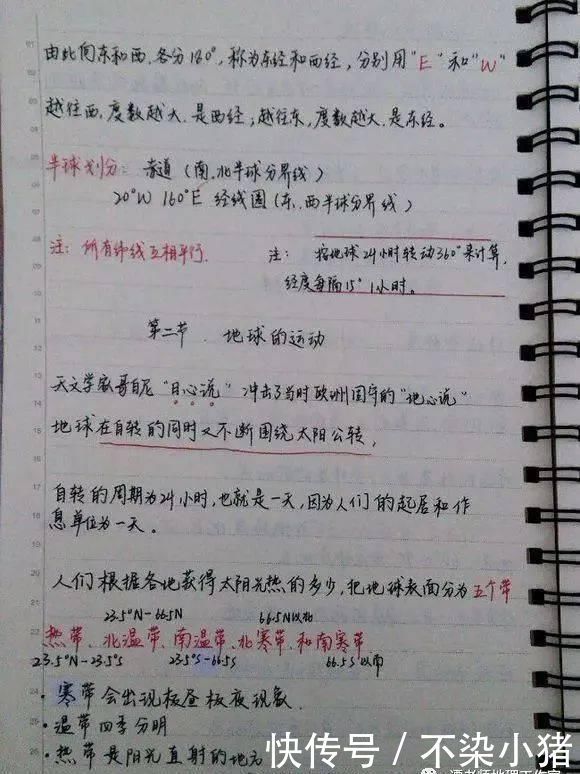 由此向东和西,各分180°,称为东经和西经,分别用"E"和"W"
越往西,度数越大,是西经;越往东,度数越大,是东经。
半球划分: 赤道(南.北半球分界线)
20°W 160°E 经线圈(东.西半球分界线)
注: 所有纬线互相平行.
注: 按地球24小时转动360°来计算,
经度每隔15° 1小时。
第二节. 地球的运动
天文学家哥白尼"日心说"冲击了当时欧洲固守的"地心说"
地球在自转的同时又不断围绕太阳公转,
自转的周期为24小时,也就是一天,因为人们的起居和作
息单位为一天。
人们根据各地获得太阳光热的多少,把地球表面分为五个带
23.5°N-66.5N 66.5N以北
热带、北温带、南温带、北寒带、和南寒带
23.5°N-23.5°S 23.5°S-66.5S 66.5S以南
· 寒带会出现极昼极夜现象.
· 温带四季分明
· 热带是阳光直射的地方
快传号 / 不染小猪